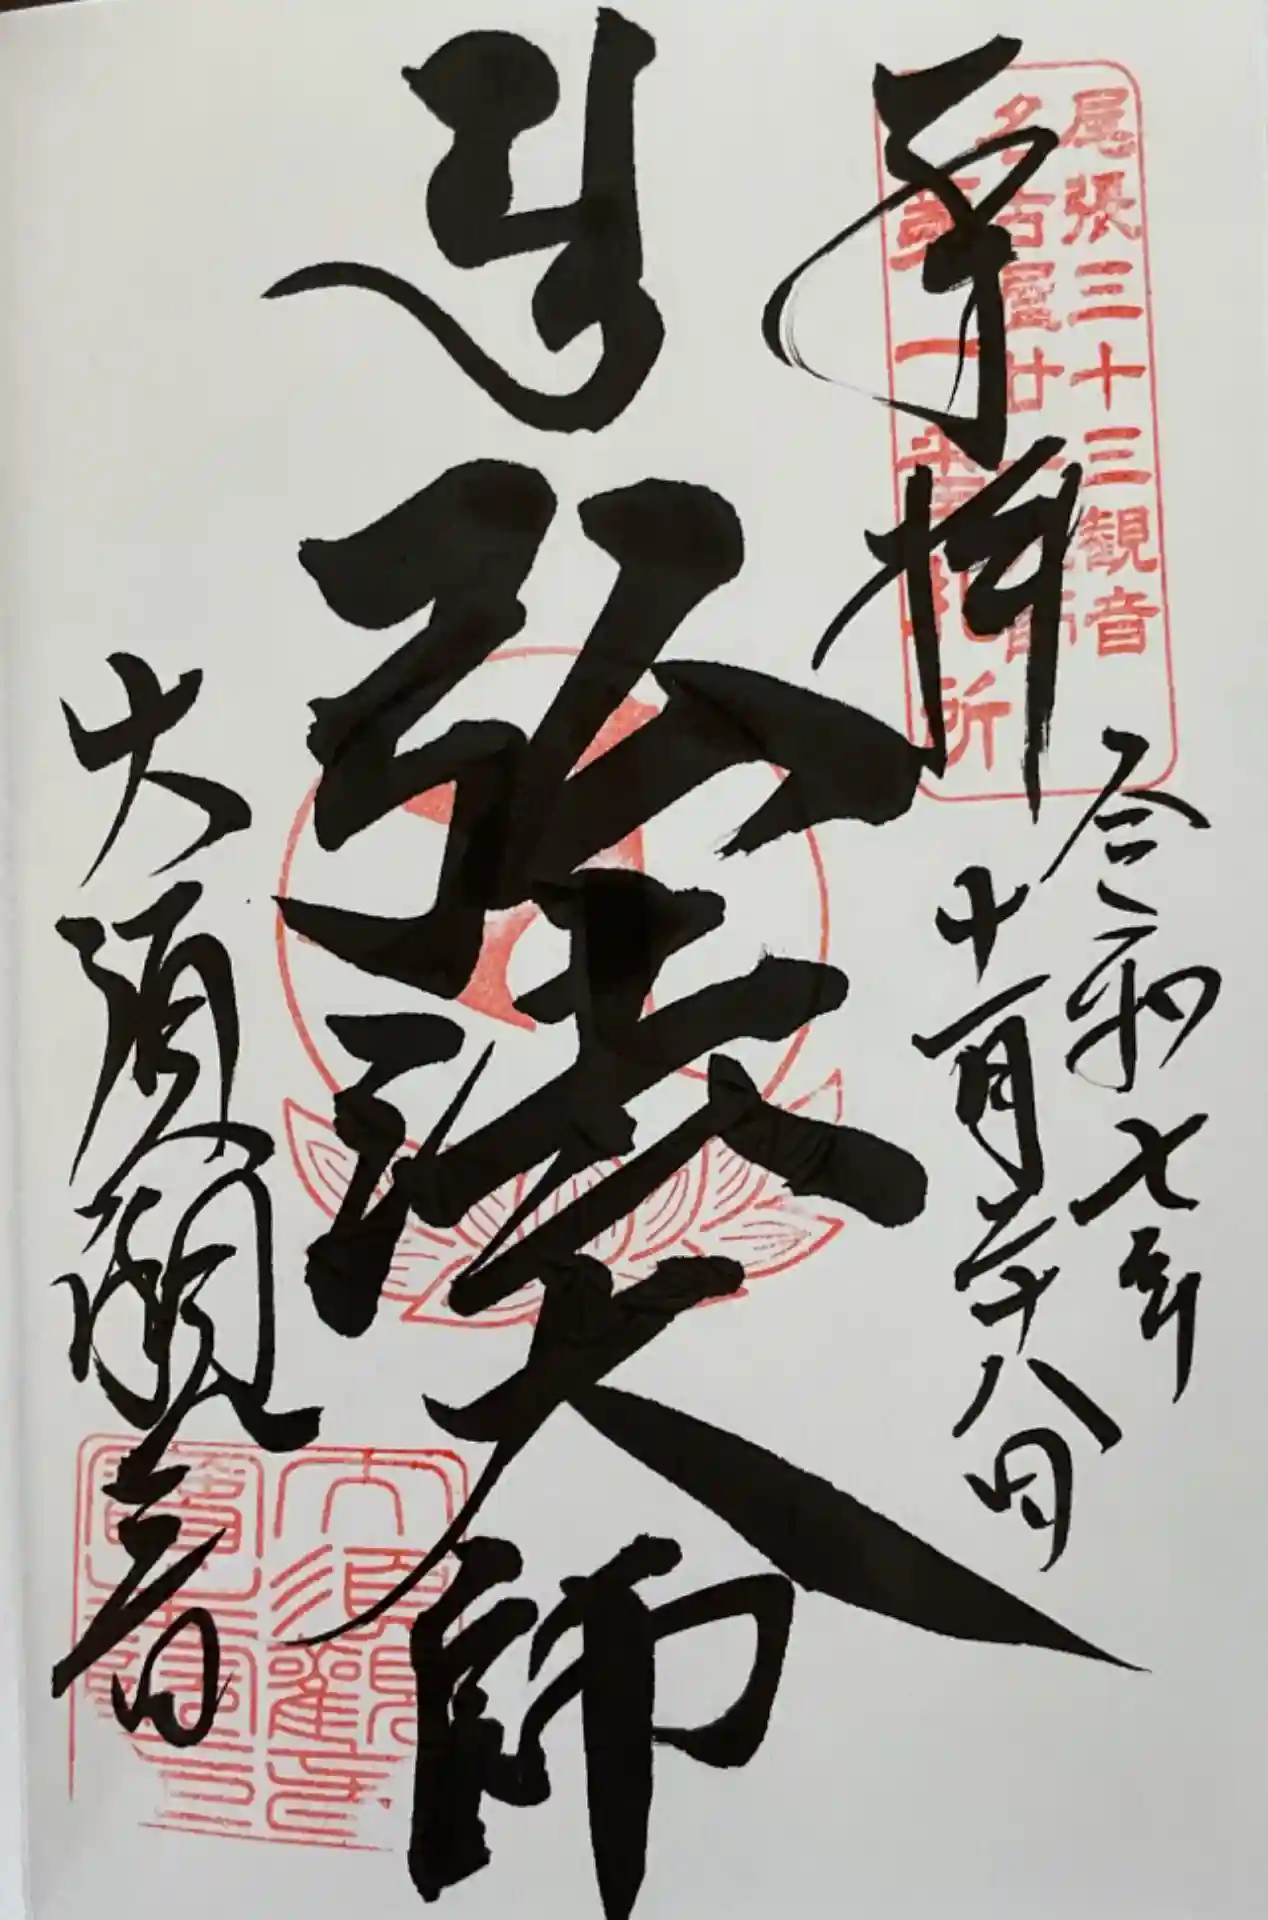 尾張三十三観音
名古屋廿一大師
第一番札所
奉拝
令和七年
十一月二十八日
弘法大師
大須観音